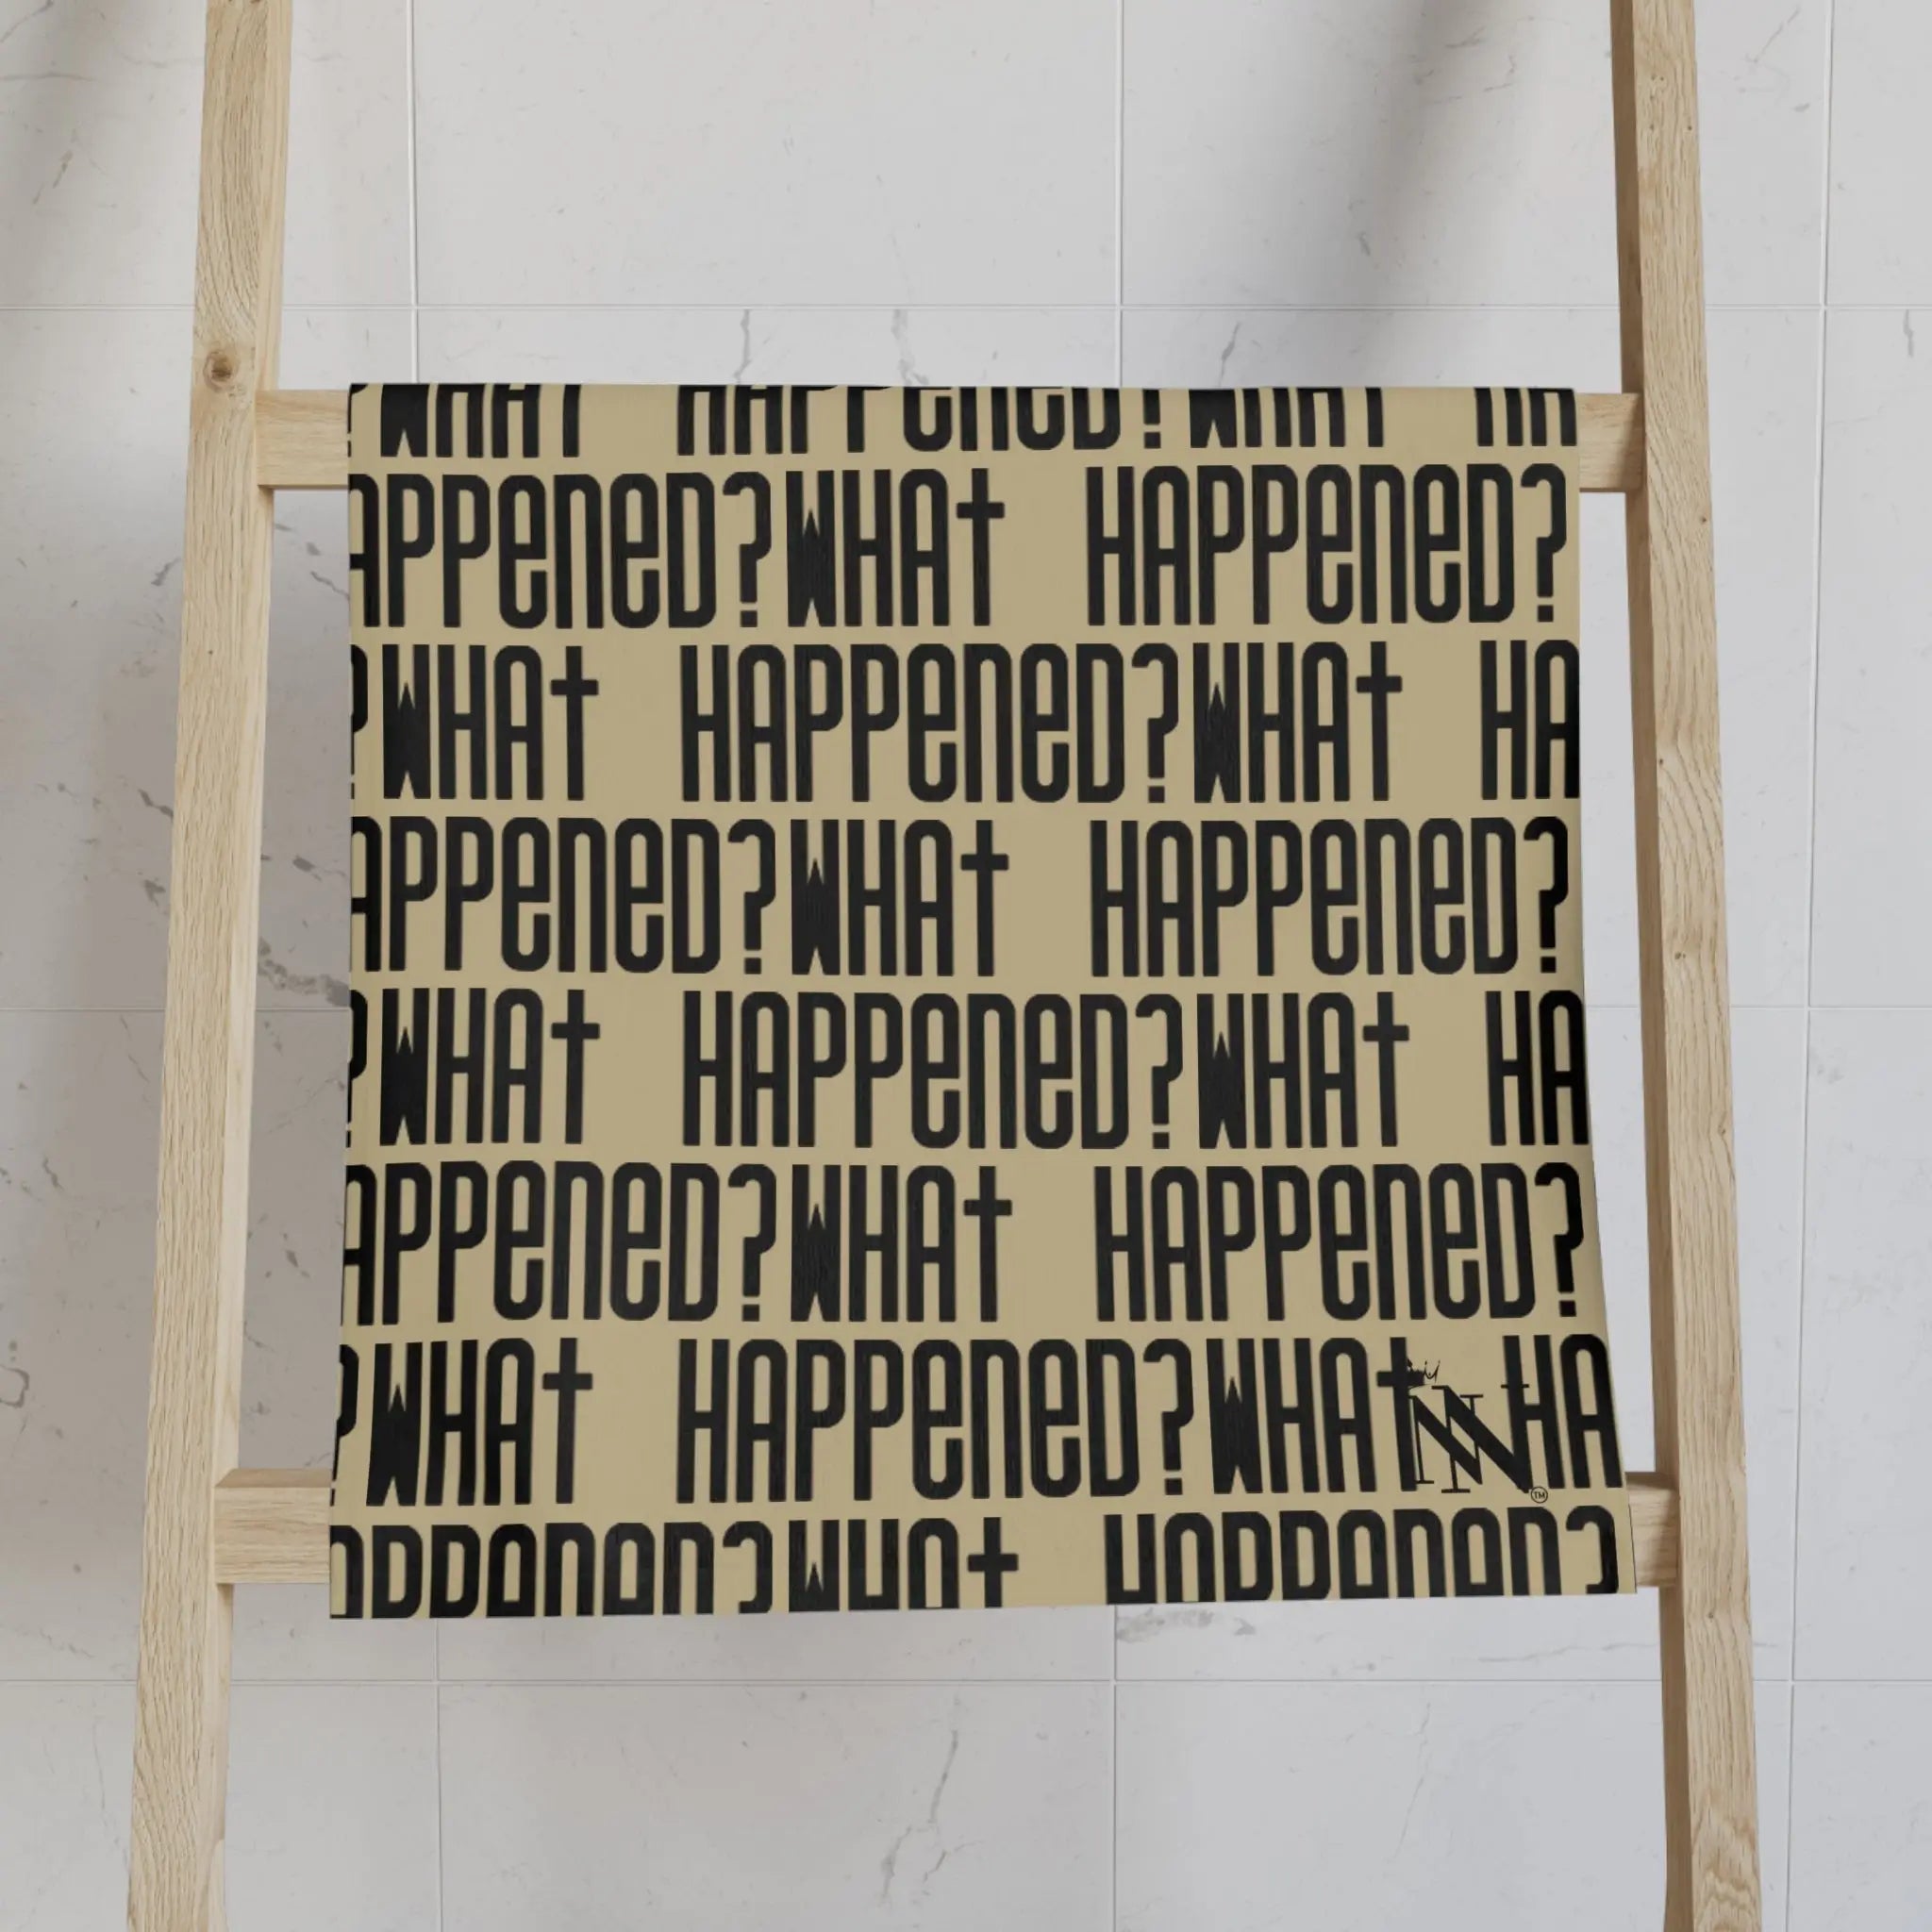 ?WHAT HAPPENED?WHAT HA
APPENED?WHAT HAPPENED?
?WHAT HAPPENED?WHAT HA
APPENED?WHAT HAPPENED?
?WHAT HAPPENED?WHAT HA
APPENED?WHAT HAPPENED?
?WHAT HAPPENED?WHAT HA
N TM
APPENED?WHAT HAPPENED?